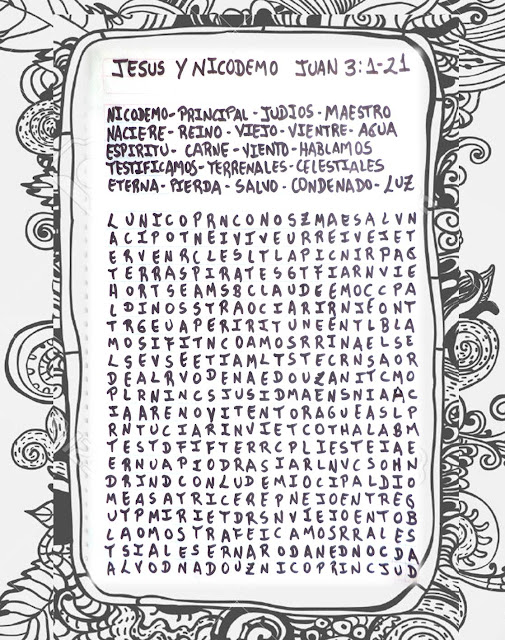 JESUS Y NICODEMO JUAN 3:1-21
NICODEMO- PRINCIPAL - JUDIOS - MAESTRO
NACIERE - REINO - VIEJO - VIENTRE - AGUA
ESPIRITU - CARNE - VIENTO - HABLAMOS
TESTIFICAMOS - TERRENALES - CELESTIALES
ETERNA - PIERDA - SALVO - CONDENADO - LUZ
L U N I C O P R N C O N O S Z M A E S A L V N
A C I P O T N E I V I V E U R R E I V E J E T
E R V E N R C L E S L T L A P I C N I R P A G
T E R R A S P I R A T E S G T F I A R N V I E
H O R T S E A M S B C L A U D E E M O C C P A
L D I N O S S T R A O C I A R I R N J E O N T
T R G E U A P E R I R I T U N E E N T L B L A
M O S I F I T N C O A M O S R R I N A E L S E
L S E V S E E T I A M L T S T E C R N S A O R
D E A L R V O D E N A E D O U Z A N I T C M O
P L R N I N C S J U S I D M A E N S N I A A C
I A A R E N O V I T E N T O R A G U E A S L P
R N T U C I A R I N V I E T C O T H A L A B M
T E S T D F I F T E R R C P L I E S T E I A E
E R N U A P I O D R A S I A R L N V C S O H N
D R I N D C O N L U D E M I O C I P A L D I O
M E A S A T R I C E R E P N E J O E N T R E G
U T P M I R I E T D R S N V I E J O E N T O B
L A O M O S T R A F E I C A M O S R R A L E S
T S I A L E S E R N A R O D A N E D N O C D A
A L V O D N A D O U Z N I C O P R I N C J U D